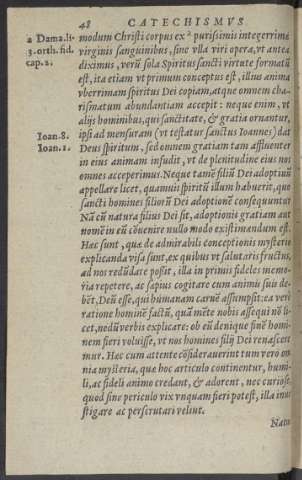 48 CATECHISMVS
a Dama.li.
3.orth.fid.
cap.2.
modum Christi corpus ex ᵃ purissimis integerrimæ
virginis sanguinibus, sine vlla viri opera, vt antea
diximus, verũ sola Spiritus sancti virtute formatũ
est, ita etiam vt primum conceptus est, illius anima
vberrimam spiritus Dei copiam, atque omnem cha-
rismatum abundantiam accepit: neque enim, vt
alijs hominibus, qui sanctitate, & gratia ornantur,
Ioan.8.
ipsi ad mensuram (vt testatur sanctus Ioannes) dat
Ioan.1.
Deus spiritum, sed omnem gratiam tam affluenter
in eius animam infudit, vt de plenitudine eius nos
omnes acceperimus. Neque tamẽ filiũ Dei adoptiuũ
appellare licet, quamuis spiritũ illum habuerit, quo
sancti homines filiorũ Dei adoptionẽ consequuntur
Nã cũ natura filius Dei sit, adoptionis gratiam aut
nomẽ in eũ cõuenire nullo modo existimandum est.
Hæc sunt, quæ de admirabili conceptionis mysterio
explicanda visa sunt, ex quibus vt salutaris fructus,
ad nos redũdare possit, illa in primis fideles memo-
ria repetere, ac sæpius cogitare cum animis suis de-
bẽt, Deũ esse, qui humanam carnẽ assumpsit: ea verò
ratione hominẽ factũ, quã mẽte nobis assequi nõ li-
cet, nedũ verbis explicare: ob eũ denique finẽ homi-
nem fieri voluisse, vt nos homines filij Dei renascere-
mur. Hæc cum attente cõsiderauerint tum verò om-
nia mysteria, quæ hoc articulo continentur, humi-
li, ac fideli animo credant, & adorent, nec curiose,
quod sine periculo vix vnquam fieri potest, illa inue
stigare ac perscrutari velint.